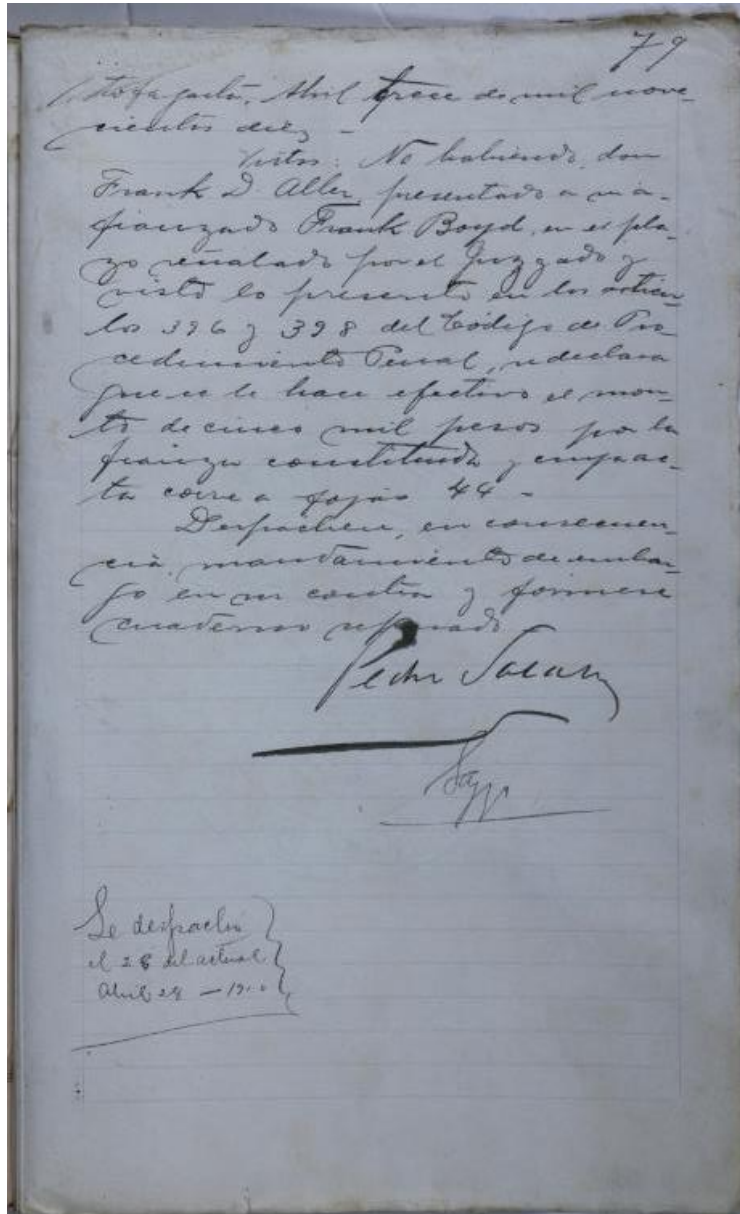 79
Antofagasta, Abril trece de mil nove-
cientos diez -
Vistos: No habiendo don
Frank D. Aller presentado a su a-
fianzado Frank Boyd, en el pla-
zo señalado por el Juzgado y
visto lo prescrito en los artícu-
los 396 y 398 del Código de Pro-
cedimiento Penal, se declara
que se le hace efectivo el mon-
to de cinco mil pesos por la
fianza constituida y cuya ac-
ta corre a fojas 44 -
Despáchese, en consecuen-
cia, mandamiento de embar-
go en su contra y fórmese
cuaderno separado
Pedro
Se despachó
el 28 del actual
Abril 28 -